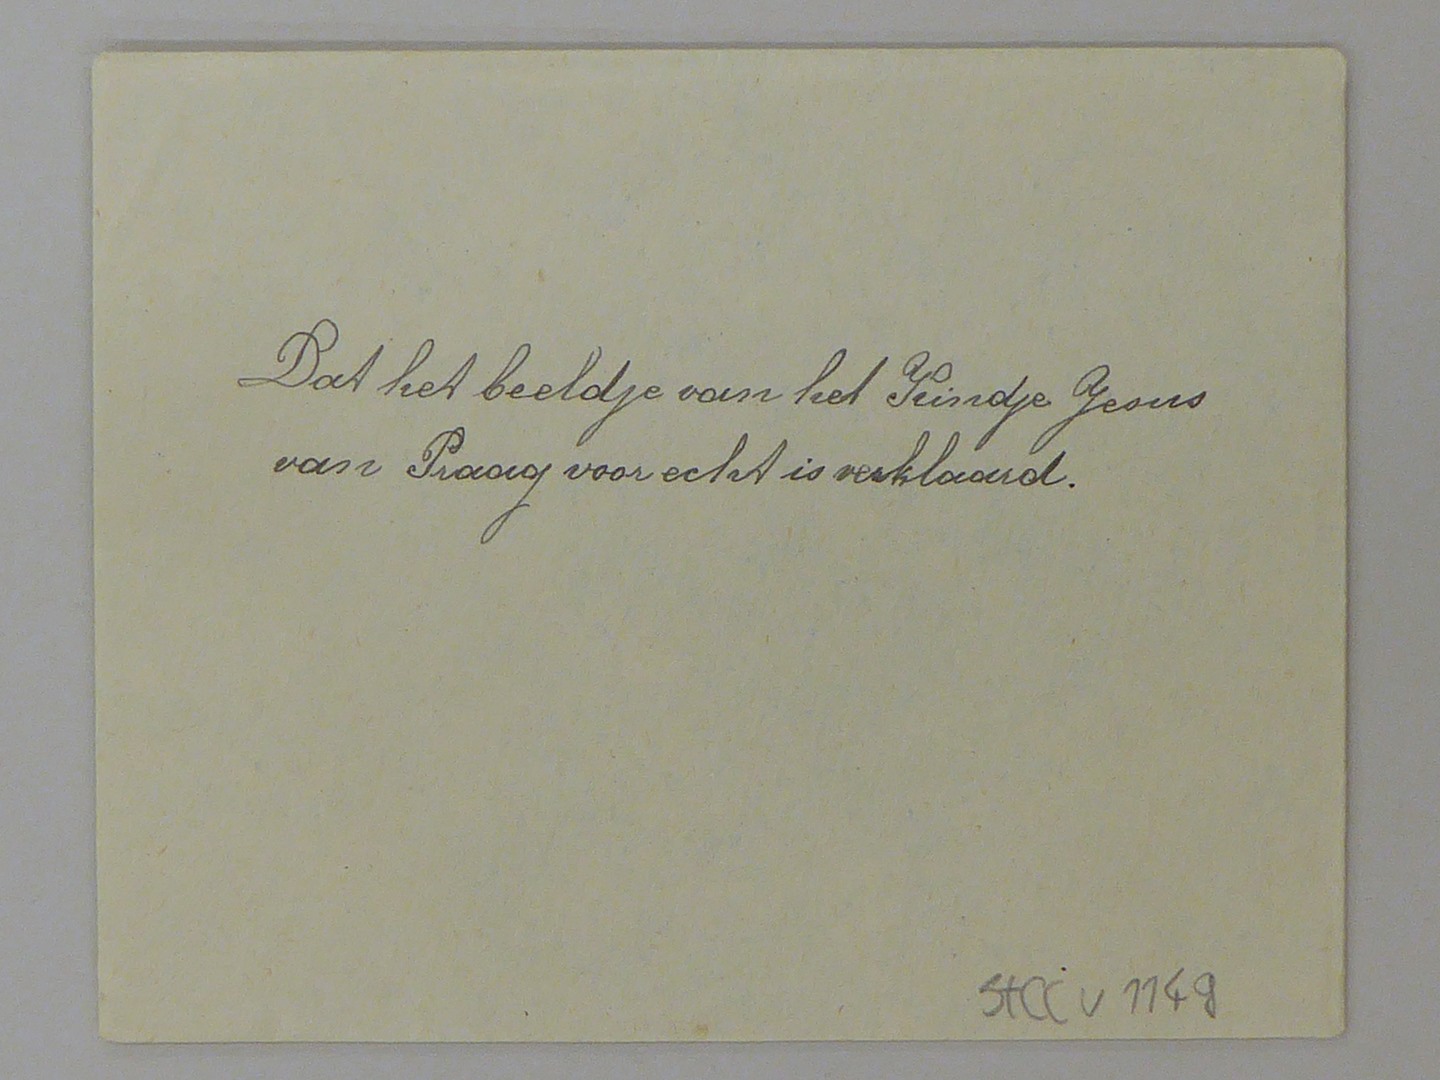 Dat het beeldje van het Kindje Jesus
van Praag voor echt is verklaard.
StCC v 1149